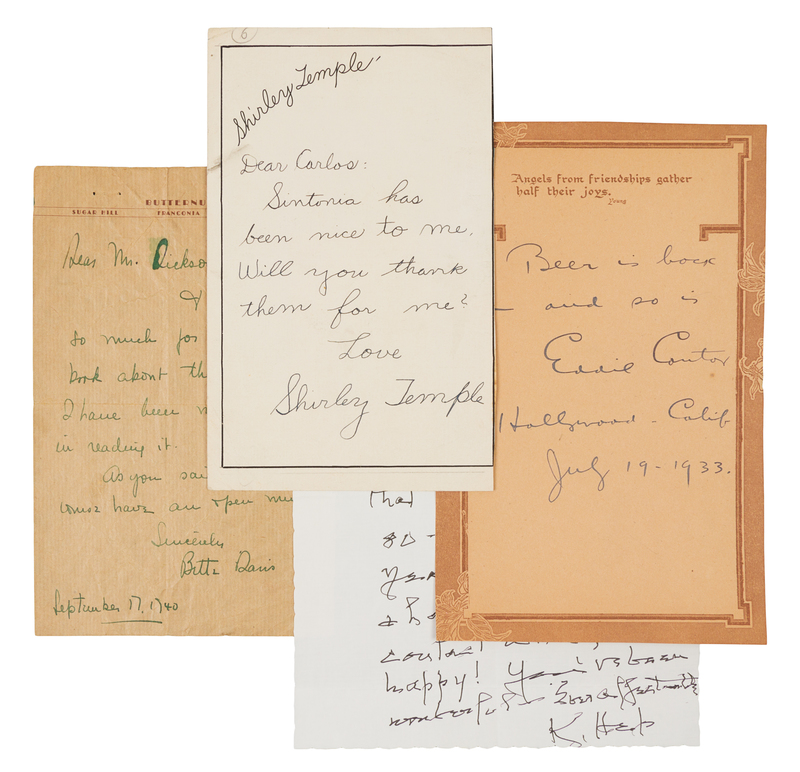 6
Shirley Temple
Dear Carlos:
Sintonia has
been nice to me.
Will you thank
them for me?
Love
Shirley Temple
BUTTERNU
SUGAR HILL FRANCONIA
Dear Mr. Dickso
so much for
book about th
I have been
in reading it.
As you sai
have an open
Sincerely
Bette Davis
September 17, 1940
Angels from friendships gather
half their joys.
Young
Beer is back
— and so is
Eddie Cantor
Hollywood - Calif
July 19 - 1933.
that
so
a
happy! You've been
K. Hep